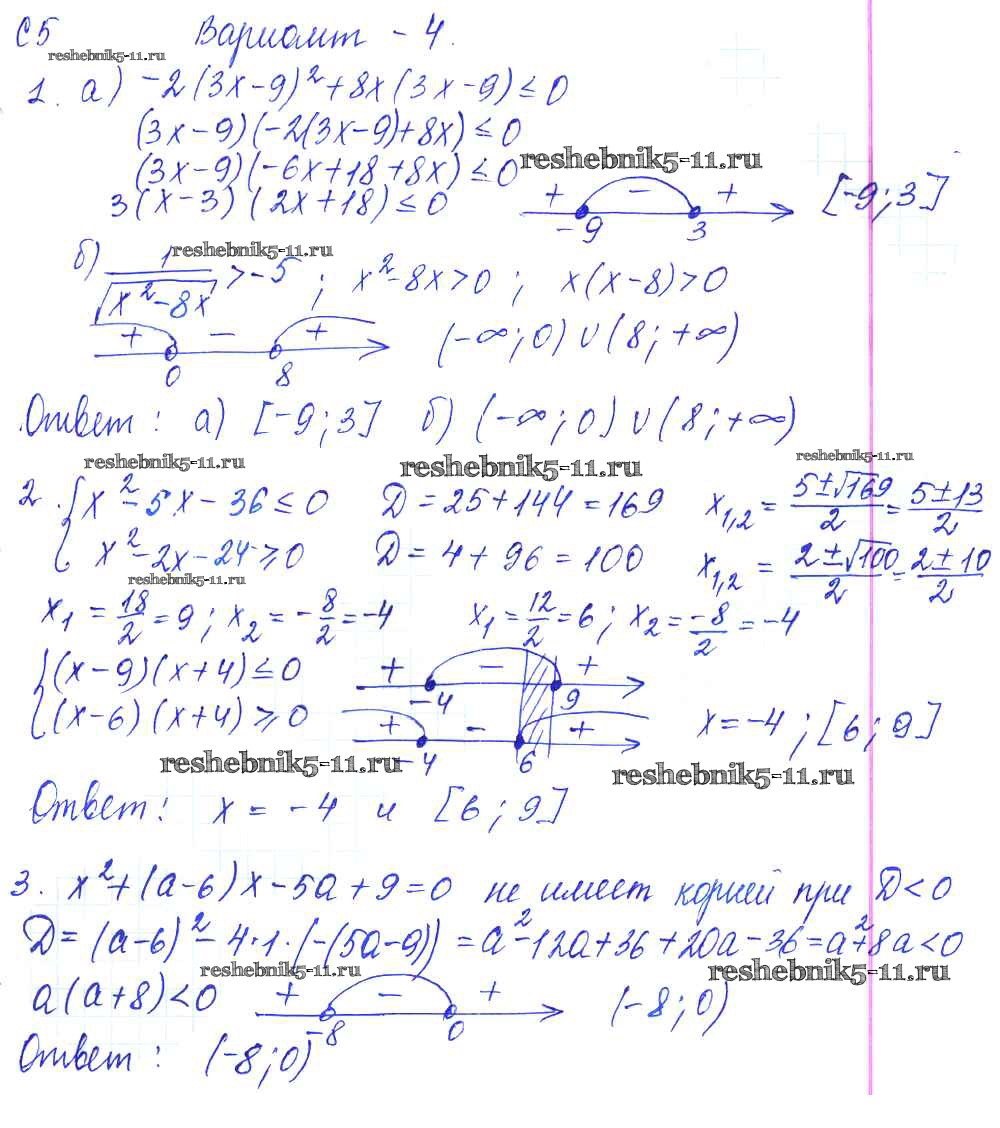 С5 Вариант - 4.
reshebnik5-11.ru
1. а) -2(3x-9)²+8x(3x-9)≤0
(3x-9)(-2(3x-9)+8x)≤0
reshebnik5-11.ru
(3x-9)(-6x+18+8x)≤0
3(x-3)(2x+18)≤0 + - + -9 3 [-9;3]
reshebnik5-11.ru
б) 1/√(x²-8x) >-5 ; x²-8x>0 ; x(x-8)>0
+ - + 0 8 (-∞;0)∪(8;+∞)
Ответ: а) [-9;3] б) (-∞;0)∪(8;+∞)
reshebnik5-11.ru reshebnik5-11.ru reshebnik5-11.ru
2. { x²-5x-36≤0 D=25+144=169 x₁,₂ = (5±√169)/2 = (5±13)/2
x²-2x-24≥0 D=4+96=100 x₁,₂ = (2±√100)/2 = (2±10)/2
reshebnik5-11.ru
x₁ = 18/2 = 9; x₂ = -8/2 = -4 x₁ = 12/2 = 6; x₂ = -8/2 = -4
{ (x-9)(x+4)≤0 + - + -4 9
(x-6)(x+4)≥0 + - + -4 6 x=-4; [6;9]
reshebnik5-11.ru reshebnik5-11.ru
Ответ: x = -4 и [6;9]
3. x²+(a-6)x-5a+9=0 не имеет корней при D<0
D=(a-6)²-4·1·(-(5a-9))=a²-12a+36+20a-36=a²+8a<0
reshebnik5-11.ru reshebnik5-11.ru
a(a+8)<0 + - + -8 0 (-8;0)
Ответ: (-8;0)